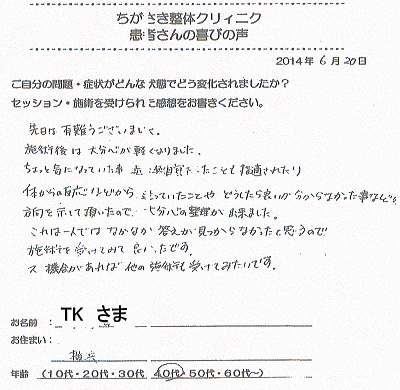 ちがさき整体クリィニク
患者さんの喜びの声
2014年 6月 20日
ご自分の問題・症状がどんな 犬態でどう変化されましたか？
セッション・施術を受けられ ご感想をお書きください。
先日は有難うございました。
施術後は大分心が軽くなりました。
ちょっと気になっていた事 たことも指適されたり
体からの反応などから っていたことや どうしたら良いか分からなかった事など
方向を示して頂いたので 大分心の整理が出来ました。
これは一人では なかなか 答えが見つからなかったと思うので
施術を受けてみて 良かったです。
又 機会があれば 他の施術も 受けてみたいです。
お名前： TK さま
お住まい：
年齢 （10代・20代・30代 40代・50代・60代～）